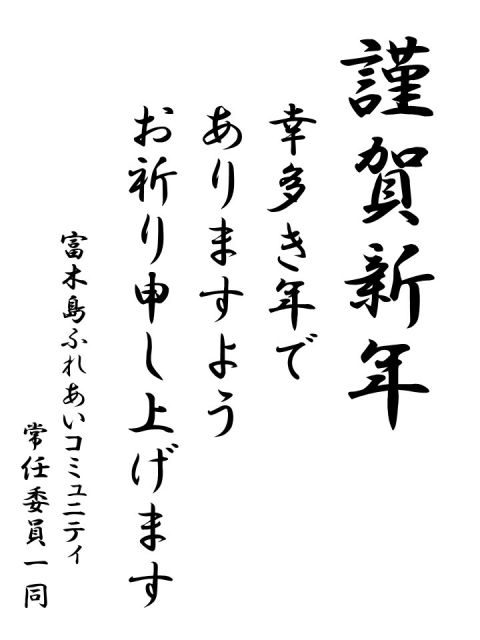 謹賀新年
幸多き年で
ありますよう
お祈り申し上げます
富木島ふれあいコミュニティ
常任委員一同